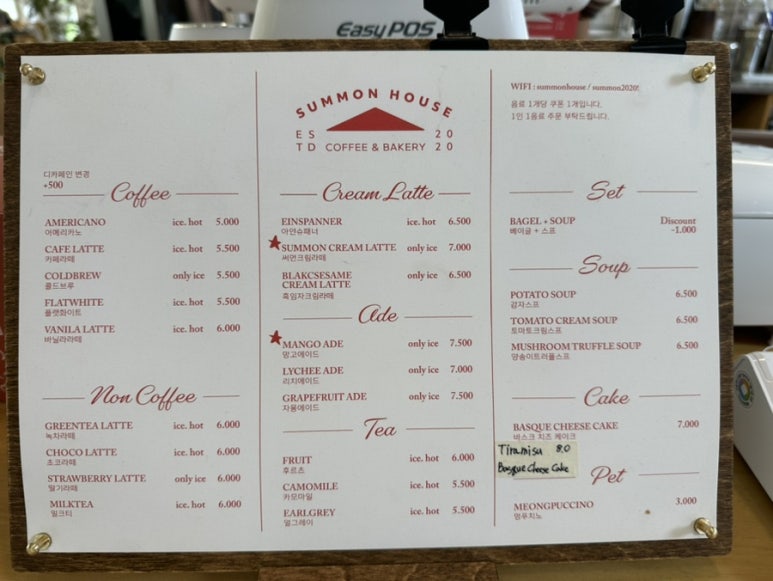 EasyPOS
SUMMON HOUSE
ES 20
TD COFFEE & BAKERY 20
디카페인 변경
+500
Coffee
AMERICANO ice. hot 5.000
아메리카노
CAFE LATTE ice. hot 5.500
카페라떼
COLDBREW only ice 5.500
콜드브루
FLATWHITE ice. hot 5.500
플랫화이트
VANILA LATTE ice. hot 6.000
바닐라라떼
Non Coffee
GREENTEA LATTE ice. hot 6.000
녹차라떼
CHOCO LATTE ice. hot 6.000
초코라떼
STRAWBERRY LATTE only ice 6.000
딸기라떼
MILKTEA ice. hot 6.000
밀크티
Cream Latte
EINSPANNER ice. hot 6.500
아인슈패너
SUMMON CREAM LATTE only ice 7.000
써먼크림라떼
BLAKCSESAME only ice 6.500
CREAM LATTE
흑임자크림라떼
Ade
MANGO ADE only ice 7.500
망고에이드
LYCHEE ADE only ice 7.000
리치에이드
GRAPEFRUIT ADE only ice 7.500
자몽에이드
Tea
FRUIT ice. hot 6.000
후르츠
CAMOMILE ice. hot 5.500
카모마일
EARLGREY ice. hot 5.500
얼그레이
WIFI : summonhouse / summon2020!
음료 1개당 쿠폰 1개입니다.
1인 1음료 주문 부탁드립니다.
Set
BAGEL + SOUP Discount
베이글 + 스프 -1.000
Soup
POTATO SOUP 6.500
감자스프
TOMATO CREAM SOUP 6.500
토마토크림스프
MUSHROOM TRUFFLE SOUP 6.500
양송이트러플스프
Cake
BASQUE CHEESE CAKE 7.000
바스크 치즈 케이크
Tiramisu 8.0
Basque Cheese Cake
Pet
MEONGPUCCINO 3.000
멍푸치노